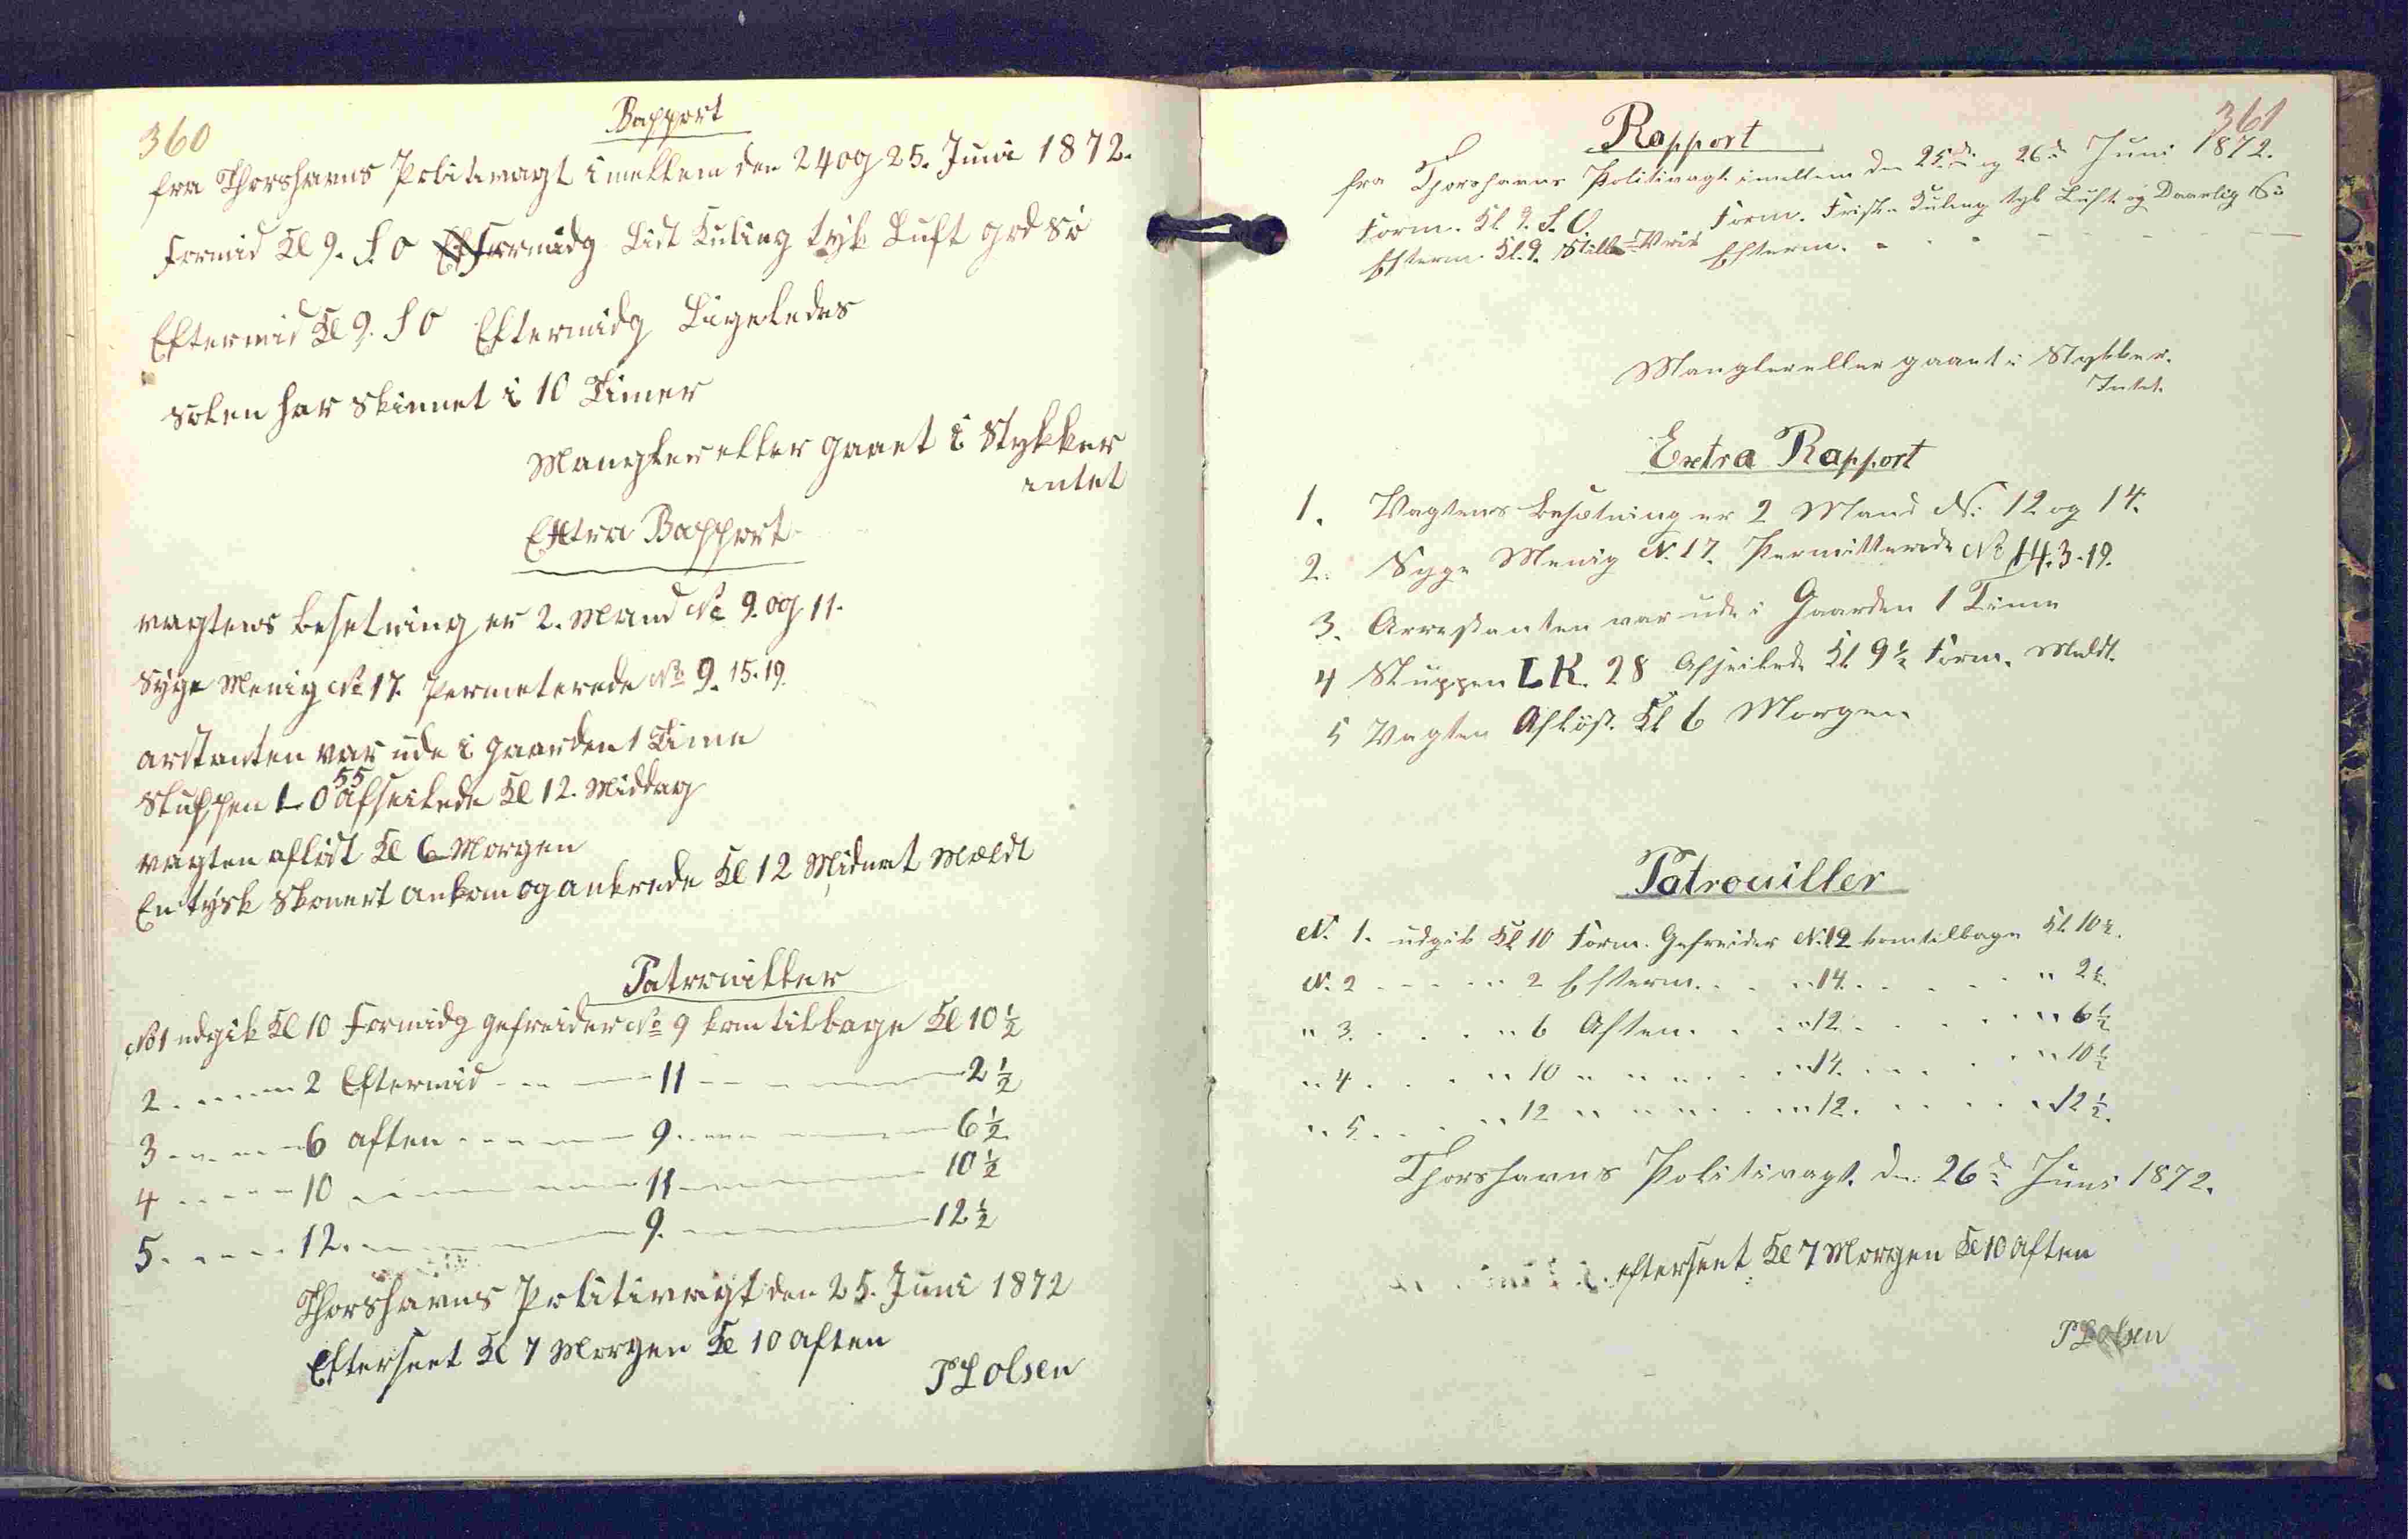 360
Rapport
fra Thorshavns Politivagt imellem den 24 og 25. Juni 1872.
Formid Kl 9. S O Formidg Lidt Kuling tyk Luft god Sö
Eftermid Kl 9. S O Eftermidg Ligeledes
Solen har skinnet i 10 Timer
Mangler eller gaaet i Stykker
intet
Extra Rapport
vagtens besetning er 2. Mand No 9. og 11.
Syge Menig No 17. Permeterede No 9. 15. 19.
arstanten var ude i gaarden 1 Time
Sluppen L O 55 afseilede Kl 12. Middag
vagten aflöst Kl 6 Morgen
En tysk Skonert ankom og ankrede Kl 12 Midnat Mældt
Patrouiller
No 1 udgik Kl 10 Formidg gefreider No 9 kom tilbage Kl 10 ½
2. - - - - 2 Eftermid - - - 11 - - - - 2 ½
3 - - - - 6 aften - - - - 9. - - - - 6 ½
4 - - - - 10 - - - - 11 - - - - 10 ½
5. - - - - 12. - - - - 9. - - - - 12 ½
Thorshavns Politivagt den 25. Juni 1872
Efterseet Kl 7 Morgen Kl 10 aften
P L Olsen
361
Rapport
fra Thorshavns Politivagt imellem den 25de og 26de Juni 1872.
Form. Kl. 9. S. O. Form. Frisk Kuling tyk Luft og Daarlig Sö
Efterm. Kl. 9. Stille Efterm. - - - - - -
Mangler eller gaaet i Stykker.
Intet.
Extra Rapport
1. Vagtens besætning er 2 Mand N: 12 og 14.
2. Syge Menig N. 17. Permitterede No 14. 3. 19.
3. Arrestanten var ude i Gaarden 1 Time
4 Sluppen LK. 28 Afseilede Kl 9 ½ Form. Meldt.
5 Vagten Aflöst. Kl 6 Morgen
Patrouiller
N. 1. udgik Kl 10 Form. Gefreider N. 12 kom tilbage Kl. 10 ½.
N. 2 - - - " 2 Efterm. . . " 14. . . . . " 2 ½.
" 3. . . . " 6 Aften. . . " 12. . . . . " 6 ½
" 4. . . . " 10 " " " . . " 14. . . . . " 10 ½
" 5. . . . " 12 " " " . . " 12. . . . . " 12 ½.
Thorshavns Politivagt. den 26de Juni 1872.
efterseet Kl 7 Morgen Kl 10 Aften
P L Olsen